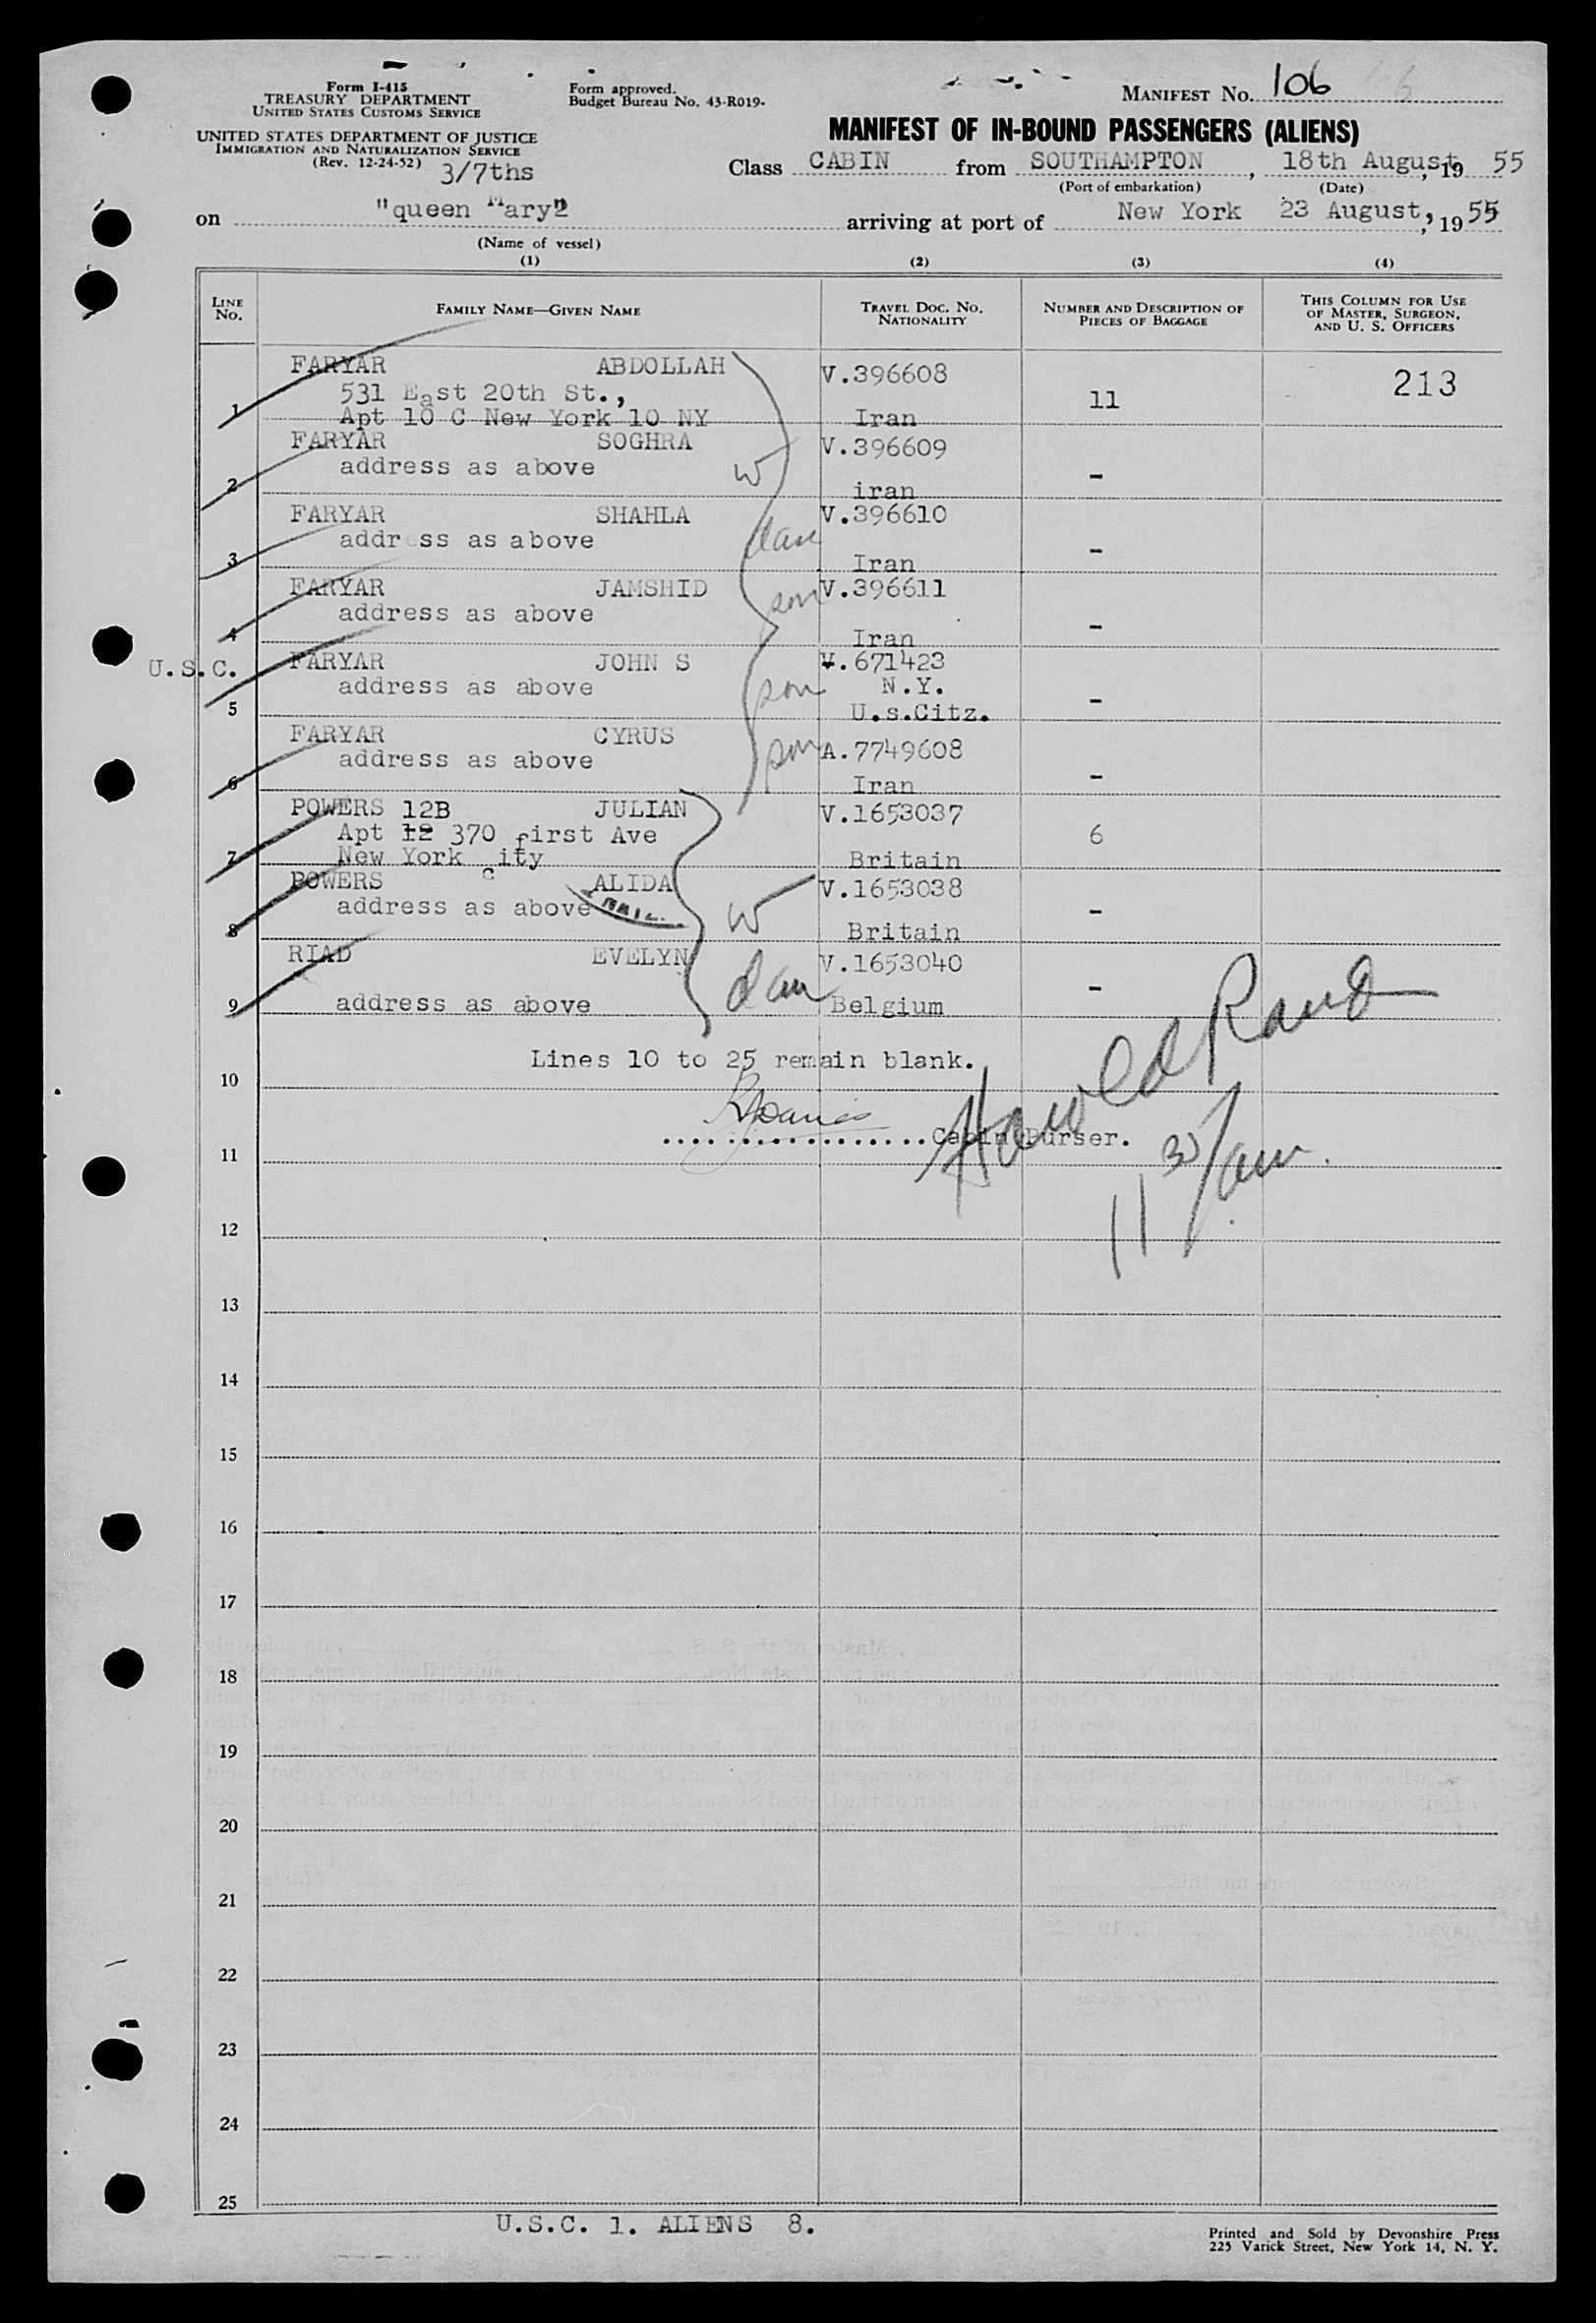 Form I-415
TREASURY DEPARTMENT
UNITED STATES CUSTOMS SERVICE
UNITED STATES DEPARTMENT OF JUSTICE
IMMIGRATION AND NATURALIZATION SERVICE
(Rev. 12-24-52)
3/7ths
Form approved.
Budget Bureau No. 43-R019.
MANIFEST No. 106
MANIFEST OF IN-BOUND PASSENGERS (ALIENS)
Class CABIN from SOUTHAMPTON, 18th August, 19 55
(Port of embarkation) (Date)
on "queen Mary2 arriving at port of New York 23 August, 19 55
(Name of vessel)
(1) (2) (3) (4)
LINE No. FAMILY NAME—GIVEN NAME TRAVEL DOC. No. NATIONALITY NUMBER AND DESCRIPTION OF PIECES OF BAGGAGE THIS COLUMN FOR USE OF MASTER, SURGEON, AND U. S. OFFICERS
FARYAR ABDOLLAH V.396608 213
531 East 20th St., 11
1 Apt 10 C New York 10 NY Iran
FARYAR SOGHRA V.396609
address as above W -
2 iran
FARYAR SHAHLA V.396610
address as above dau -
3 Iran
FARYAR JAMSHID son V.396611
address as above -
4 Iran
U.S.C. FARYAR JOHN S V.671423
address as above son N.Y. -
5 U.s.Citz.
FARYAR CYRUS
address as above son A.7749608 -
6 Iran
POWERS 12B JULIAN V.1653037
Apt 12 370 first Ave 6
7 New York city Britain
POWERS ALIDA V.1653038
address as above W -
8 Britain
RIAD EVELYN V.1653040
dau -
9 address as above Belgium
Lines 10 to 25 remain blank.
10
Harold Rand
.................Cabin Purser.
11 30/am.
11
12
13
14
15
16
17
18
19
20
21
22
23
24
25
U.S.C. 1. ALIENS 8.
Printed and Sold by Devonshire Press
225 Varick Street, New York 14, N. Y.